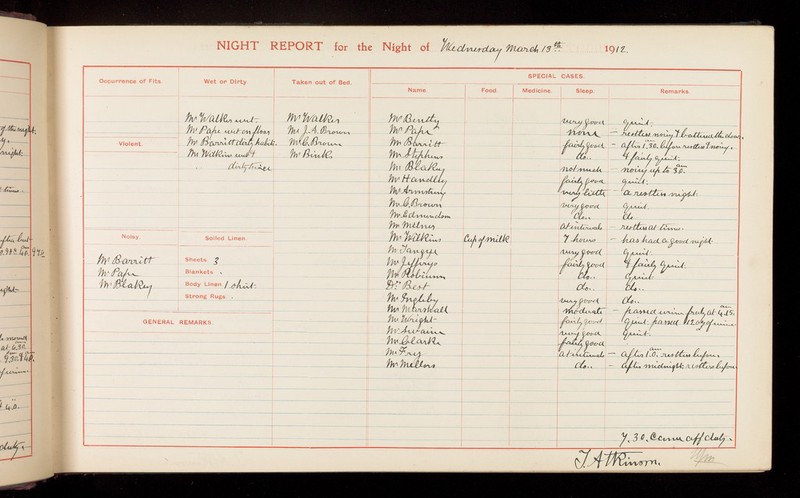 NIGHT REPORT for the Night of Wednesday March 13th 1912
Occurrence of Fits.
Wet or Dirty.
Taken out of Bed.
SPECIAL CASES.
Name.
Food.
Medicine.
Sleep.
Remarks.
Mr Walker wet.
Mr Pape wet on floor
Mr Barritt dirty habits.
Mr Wilkins wet &
dirty twice
Mr Walker
Mr J. A. Brown
Mr C. Brown
Mr Binks
Violent.
Noisy.
Mr Barritt
Mr Pape
Mr Blakey
Soiled Linen.
Sheets 3
Blankets
Body Linen 1 shirt.
Strong Rugs
GENERAL REMARKS.
Mr Bentty very good quiet.
Mr Pape none — restless noisy & battered the door.
Mr Barritt fairly good — after 1.30. before restless & noisy.
Mr Stephens do.. & fairly quiet.
Mr Blakey not much — noisy up to 3.0. am
Mr Handley fairly good quiet.
Mr Armstrong very little — a restless night.
Mr C. Brown very good quiet.
Mr Edmundson do.. do.
Mr Milner at intervals — restless at times.
Mr Wilkins Cup of milk 7 hours — has had a good night
Mr Tangye very good quiet.
Mr Jeffreys fairly good & fairly quiet.
Mr Robinson do.. quiet
Dr. Best do.. do..
Mr Ingleby very good do..
Mr Marshall moderate — passed urine freely at 4.45. am
Mr Wright fairly good quiet. passed 12 oz of urine.
Mr Swain very good quiet.
Mr Clarke fairly good
Mr Fry at intervals — after 1.0. am restless before.
Mr Mellors do.. — after midnight restless before
7.30. Came off duty.
J. Atkinson.